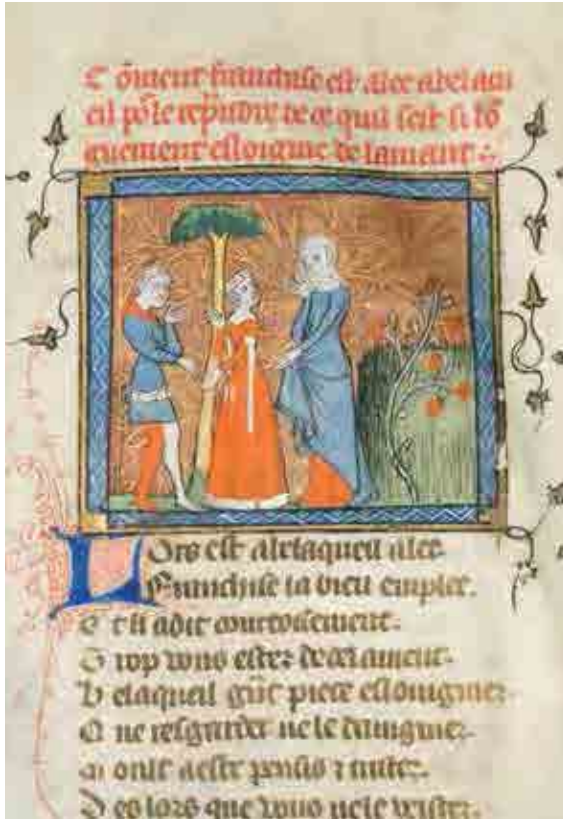 Coment franchise est alee abelacu
eil por le reprendre de ce quil sest si lo
guement esloignie de lamant
Lors est abelaqueil alee
Franchise la bien
Et li a dit courtoisement.
Trop vous estes de cel amant.
Belaqueil gnt piece esloignies
Q ne resgarder ne le daingnies
Moult a este pensis z
Des lors que vous ne le veistes.